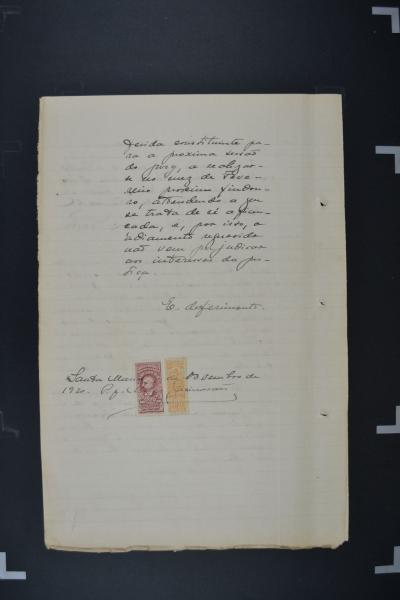 devida constituinte pa-
ra a proxima sessão
do jury, a realizar-
se no mez de Feve-
reiro proximo findou-
ro, attendendo a que
se trata de ré afian-
çada, e, por isso, o
adiamento requerido
não vem prejudicar
aos interesses da jus-
tiça.
E. deferimento.
Santa Maria de Dezembro de
1920. P. p.